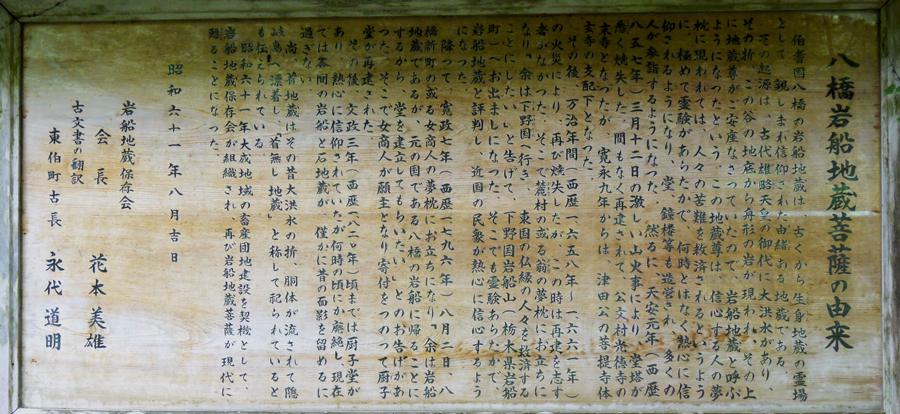 八橋岩船地蔵菩薩の由来
伯耆国八橋の岩船地蔵は、古くから生身地蔵の霊場
として、親しまれ信仰された由緒ある地蔵である。
その起源は、古代雄略天皇の御代に大洪水があり、
その折、この谷の地底から舟形の岩が現われ、その上
に地蔵尊がご安座なさっていたので、岩船地蔵と呼ぶ
ようになったという。この地蔵尊は、信心する人の夢
枕に現われては、人々の苦難を救済されるというよう
に、極めて霊験があらたかで、何時とはなく熱心に信
仰されるようになり、堂、鐘楼等も造営され、多くの
人が参詣するようになった。然るに、天安元年(西歴
八五七年)三月十二日の激しい山火事により、堂塔が
悉く焼失した。間もなく再建されて、公文村光徳寺の
末寺となったが、寛永九年からは、津田公の菩提寺体
玄寺の支配下となった。
その後、万治年間(西歴一六五八年~一六六一年)
の火災により、再び焼失したが、この時は再建を志す
者がなかった。そこで麓村の或る翁の夢枕にお立ちに
なり、「余は下野国へ行き、東国の仏縁の人々を救済する
ことにしたい。」と告げて、下野国岩船山(栃木県岩船
町)へお出ましになった。そこでも霊験あらたかで、
岩船地蔵と評判し、近国の民衆が熱心に信心するよう
になった。
降って、寛政七年(西歴一七九六年)八月二日、八
橋新町の或る女商人の夢枕にお立ちになり、「余は岩船
地蔵であるが、元の国である八橋の岩船に帰ることに
するから、堂を建立してもらいたい。」とのお告げがあ
ったので、そこで女商人が願主となり寄付をつのって厨子
堂が再建された。
その後、文政三年(西歴一八二〇年)頃までは厨子堂が
あり、熱心に信仰されていたが何時の頃にか廃絶し現在
では谷間の岩船と石地蔵が、僅かに昔の面影を留めるに
過ぎない。
尚、首地蔵はその昔大洪水の折、胴体が流されて隠
岐島へ漂着し、「首無し地蔵」と称して記られていると
も伝えられている。
昭和六十一年大成地域の畜産団地建設を契機として、
岩船地蔵保存会が組織され、再び岩船地蔵菩薩が現代に
甦ることになった。
昭和六十一年八月吉日
岩船地蔵保存会
会長 花本美雄
古文書の翻訳
東伯町古長 永代道明